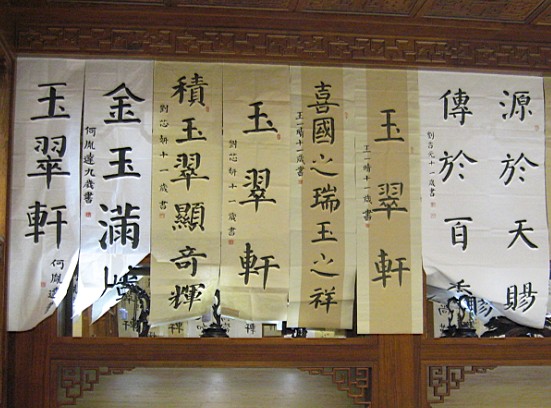 源於天賜
傳於百
劉吉元十一歲書
玉翠軒
王一晴十一歲書
喜國之瑞玉之祥
王一晴十一歲書
玉翠軒
劉芯妍十一歲書
積玉翠顯奇輝
劉芯妍十一歲書
金玉滿
何胤達九歲書
玉翠軒
何胤達